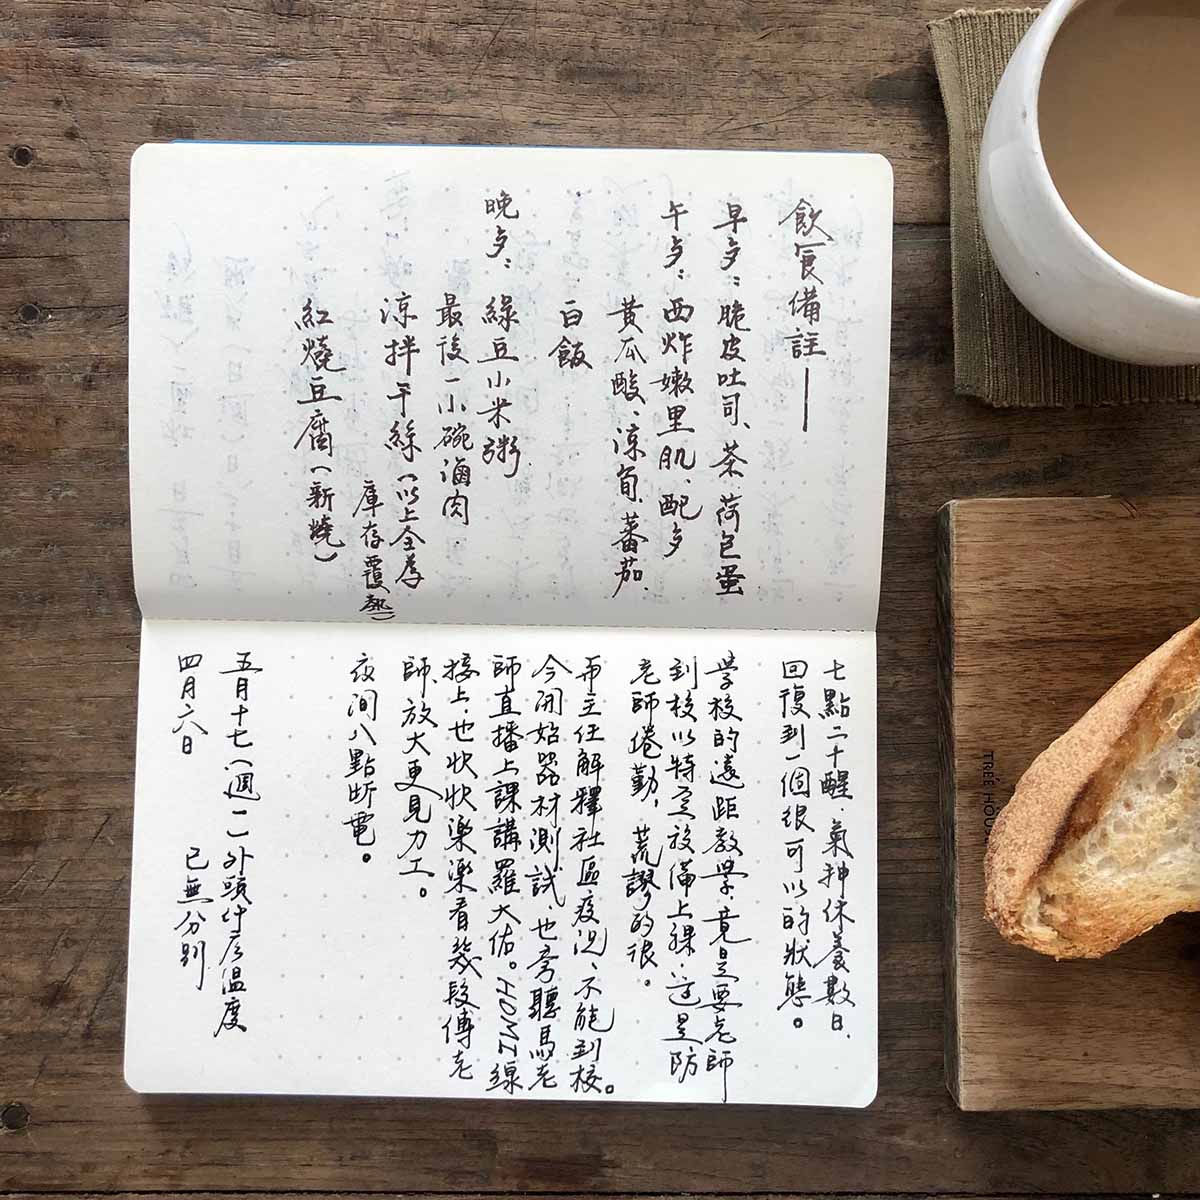 飲食備註——
早夕：脆皮吐司、茶、荷包蛋
午夕：西炸嫩里肌、配夕
黃瓜酸、涼筍、蕃茄、
白飯
晚夕：綠豆小米粥
最後一小碗滷肉
涼拌干絲（以上全為
庫存覆熱）
紅燒豆腐（新燒）
七點二十醒，氣神休養數日，
回復到一個很可以的狀態。
學校的遠距教學，竟是要老師
到校以特定設備上課，這是防
老師倦勤，荒謬的很。
再主任解釋社區疫況、不能到校。
今開始器材測試，也旁聽馬老
師直播上課講羅大佑。HDMI線
接上，也快快樂樂看幾段傅老
師，放大更見力工。
夜間八點斷電。
五月十七（週一）外頭什麼溫度
已無分別
四月六日
TREE HOUS